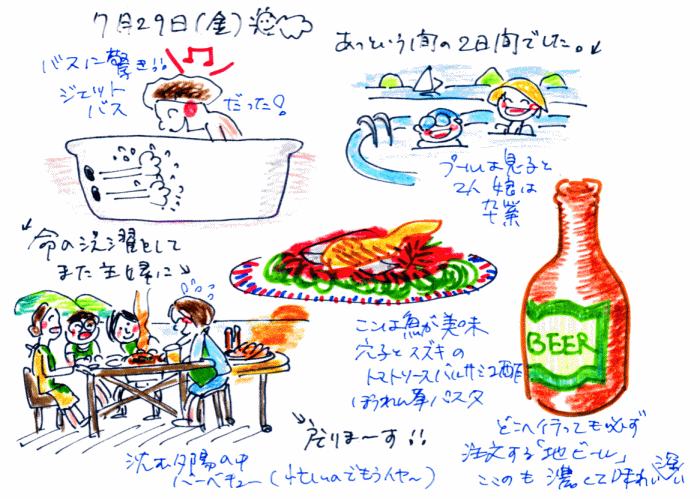 7月29日(金)
バスに驚き!!
ジェット
バス
だった!
あっという間の2日間でした。
プールは息子と
2人 娘は
卒業
命の洗濯をして
また主婦に
ここは魚が美味
穴子とスズキの
トマトソースバルサミコ酢
ほうれん草パスタ
BEER
どこへ行っても必ず
注文する「地ビール」
ここのも濃くて味わい深い
戻りまーす!!
沈む夕陽の中
バーベキュー(忙しいのでもうイヤ〜)